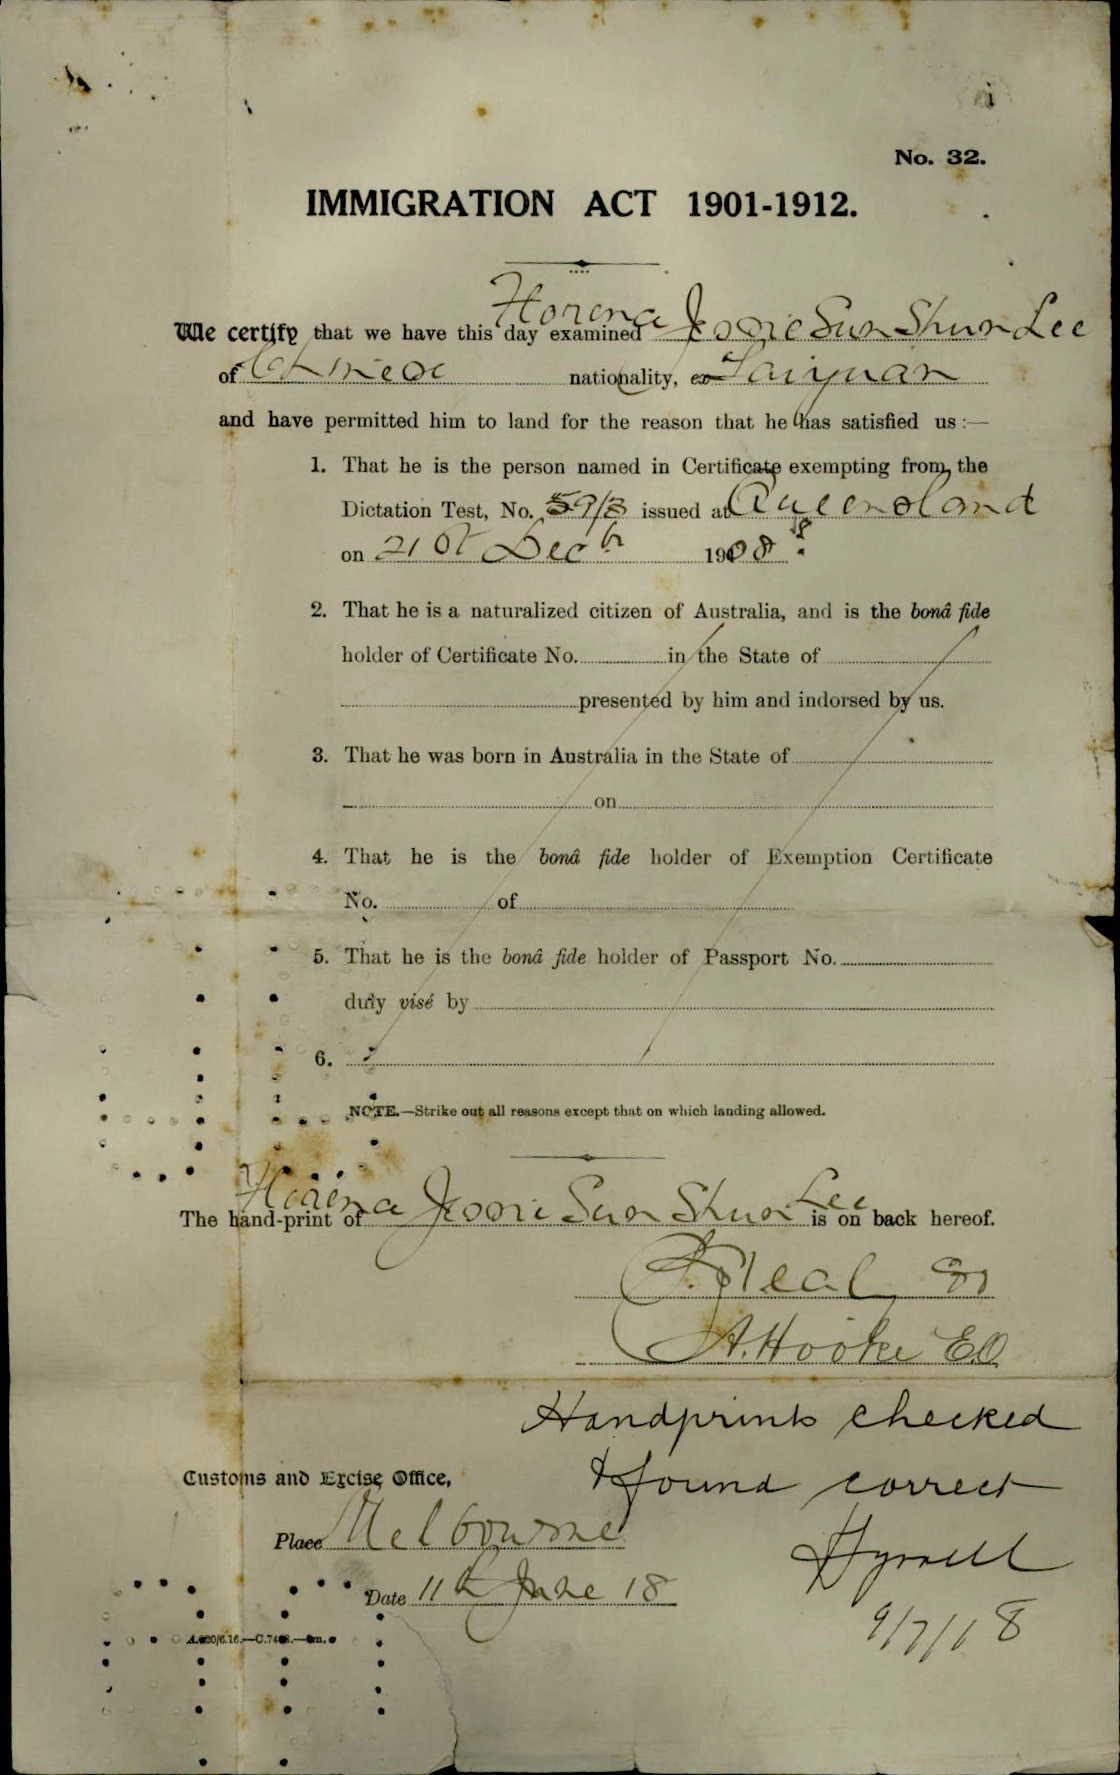 No. 32.
IMMIGRATION ACT 1901-1912.
We certify that we have this day examined Florena Jessie Sun Shun Lee
of Chinese nationality, ex Taiyuan
and have permitted him to land for the reason that he has satisfied us :—
1. That he is the person named in Certificate exempting from the
Dictation Test, No. 59/8 issued at Queensland
on 21st Decbr 1908
2. That he is a naturalized citizen of Australia, and is the bonâ fide
holder of Certificate No. in the State of
presented by him and indorsed by us.
3. That he was born in Australia in the State of
on
4. That he is the bonâ fide holder of Exemption Certificate
No. of
5. That he is the bonâ fide holder of Passport No.
duly visé by
6.
NOTE.—Strike out all reasons except that on which landing allowed.
The hand-print of Florena Jessie Sun Shun Lee is on back hereof.
A. Hooke E.O.
Handprints checked
& found correct
Customs and Excise Office,
Place Melbourne
Date 11th June 18
9/7/18